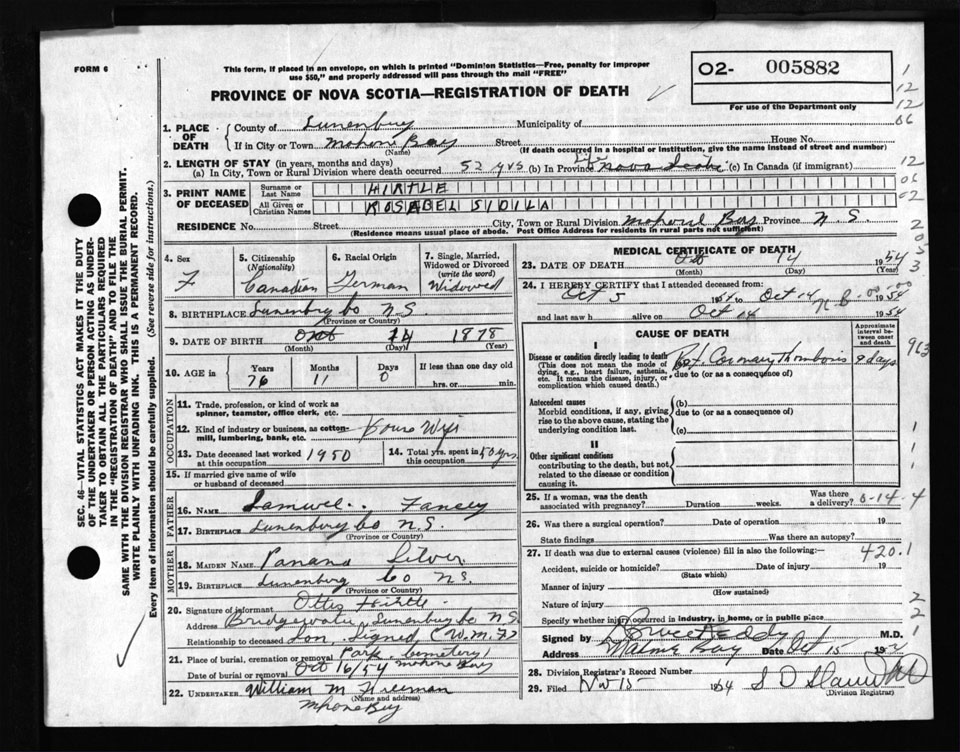 FORM 6
This form, if placed in an envelope, on which is printed "Dominion Statistics—Free, penalty for improper
use $50," and properly addressed will pass through the mail "FREE"
PROVINCE OF NOVA SCOTIA—REGISTRATION OF DEATH
O2- 005882
For use of the Department only
1
12
12
06
12
06
02
2
0
5
3
963
1
1
1
4
2
2
1
SEC. 46—VITAL STATISTICS ACT MAKES IT THE DUTY
OF THE UNDERTAKER OR PERSON ACTING AS UNDER-
TAKER TO OBTAIN ALL THE PARTICULARS REQUIRED
IN THE "REGISTRATION OF DEATH" AND TO FILE THE
SAME WITH THE DIVISION REGISTRAR WHO SHALL ISSUE THE BURIAL PERMIT.
WRITE PLAINLY WITH UNFADING INK. THIS IS A PERMANENT RECORD.
Every item of information should be carefully supplied. (See reverse side for instructions.)
1. PLACE OF DEATH County of Lunenburg Municipality of
If in City or Town Mahone Bay Street House No.
(Name) (If death occurred in a hospital or institution, give the name instead of street and number)
2. LENGTH OF STAY (in years, months and days)
(a) In City, Town or Rural Division where death occurred 52 yrs (b) In Province Life Nova Scotia (c) In Canada (if immigrant)
3. PRINT NAME OF DECEASED Surname or Last Name HIRTLE
All Given or Christian Names ROSABEL SIDILA
RESIDENCE No. Street City, Town or Rural Division Mahone Bay Province N.S.
(Residence means usual place of abode. Post Office Address for residents in rural parts not sufficient)
4. Sex F
5. Citizenship (Nationality) Canadian
6. Racial Origin German
7. Single, Married, Widowed or Divorced (write the word) Widowed
8. BIRTHPLACE Lunenburg Co N.S.
(Province or Country)
9. DATE OF BIRTH 14 1878
(Month) (Day) (Year)
10. AGE in Years Months Days If less than one day old
76 11 0 hrs. or min.
OCCUPATION
11. Trade, profession, or kind of work as
spinner, teamster, office clerk, etc.
12. Kind of industry or business, as cotton-
mill, lumbering, bank, etc. House Wife
13. Date deceased last worked at this occupation 1950
14. Total yrs. spent in this occupation 50 yrs.
15. If married give name of wife
or husband of deceased
FATHER
16. NAME Samuel Fancey
17. BIRTHPLACE Lunenburg Co N.S.
(Province or Country)
MOTHER
18. MAIDEN NAME Silver
19. BIRTHPLACE Lunenburg Co NS.
(Province or Country)
20. Signature of informant Hirtle
Address Bridgewater Lunenburg Co N.S.
Relationship to deceased Son Signed (W.M.F.)
21. Place of burial, cremation or removal Park Cemetery
Date of burial or removal Oct 16/54 Mahone Bay
22. UNDERTAKER William M Freeman
(Name and address)
Mahone Bay
MEDICAL CERTIFICATE OF DEATH
23. DATE OF DEATH Oct 14 1954
(Month) (Day) (Year)
24. I HEREBY CERTIFY that I attended deceased from:
Oct 5 1954 to Oct 14 1954
and last saw h alive on Oct 14 1954
CAUSE OF DEATH
Approximate interval between onset and death
I
Disease or condition directly leading to death
(This does not mean the mode of dying, e.g., heart failure, asthenia, etc. It means the disease, injury, or complication which caused death.)
Coronary Thrombosis 9 days
due to (or as a consequence of)
Antecedent causes
Morbid conditions, if any, giving rise to the above cause, stating the underlying condition last.
(b)
due to (or as a consequence of)
(c)
II
Other significant conditions
contributing to the death, but not related to the disease or condition causing it.
25. If a woman, was the death associated with pregnancy? Duration weeks. Was there a delivery? 0-14-4
26. Was there a surgical operation? Date of operation 19
State findings Was there an autopsy?
27. If death was due to external causes (violence) fill in also the following:— 420.1
Accident, suicide or homicide? Date of injury 19
(State which)
Manner of injury
(How sustained)
Nature of injury
Specify whether injury occurred in industry, in home, or in public place
Signed by M.D.
Address Mahone Bay Date Oct 15 19
28. Division Registrar's Record Number
29. Filed Nov 15 1954
(Division Registrar)